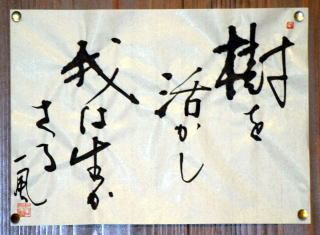 樹を
活かし
我は生か
さる
一風